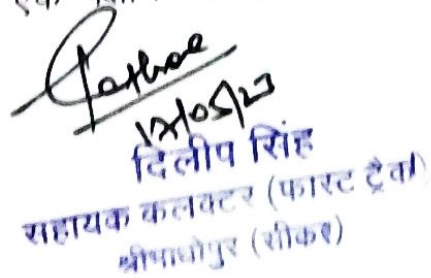 17/05/23
दिलीप सिंह
सहायक कलक्टर (फास्ट ट्रैक)
श्रीमाधोपुर (सीकर)